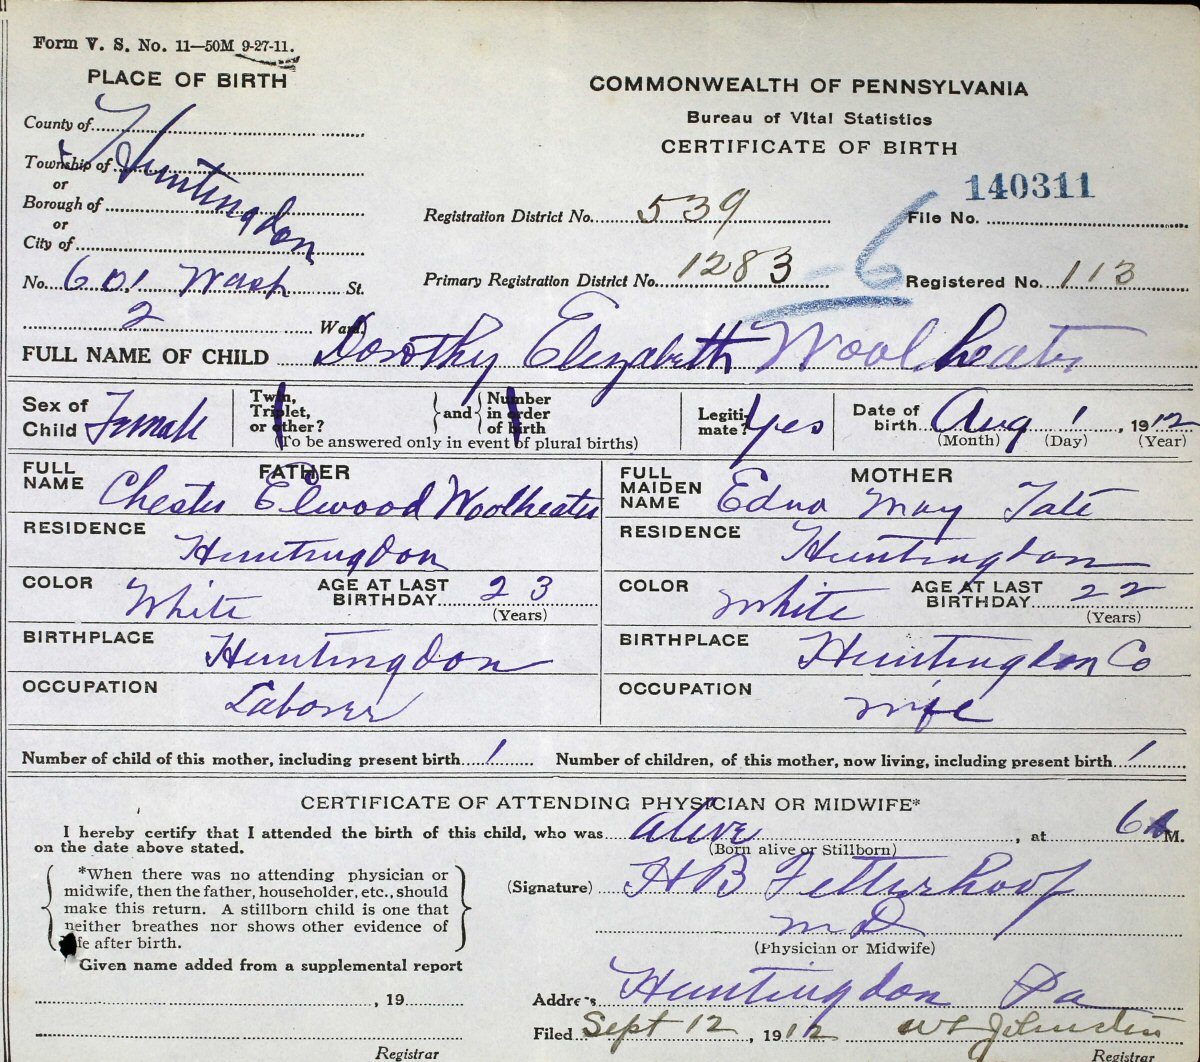 Form V. S. No. 11—50M 9-27-11.
PLACE OF BIRTH
COMMONWEALTH OF PENNSYLVANIA
Bureau of Vital Statistics
CERTIFICATE OF BIRTH
County of
Township of Huntingdon
or
Borough of
or
City of
No. 601 Wash St.
2 Ward)
140311
Registration District No. 539 File No.
Primary Registration District No. 1283 - 6 Registered No. 113
FULL NAME OF CHILD Dorothy Elizabeth Woolheater
Sex of Child Female
Twin, Triplet, or other? } and { Number in order of birth
(To be answered only in event of plural births)
Legitimate? yes
Date of birth Aug 1, 1912
(Month) (Day) (Year)
FATHER
FULL NAME Chester Elwood Woolheater
RESIDENCE Huntingdon
COLOR White AGE AT LAST BIRTHDAY 23
(Years)
BIRTHPLACE Huntingdon
OCCUPATION Laborer
MOTHER
FULL MAIDEN NAME Edna May Tate
RESIDENCE Huntingdon
COLOR White AGE AT LAST BIRTHDAY 22
(Years)
BIRTHPLACE Huntingdon Co
OCCUPATION wife
Number of child of this mother, including present birth 1 Number of children, of this mother, now living, including present birth 1
CERTIFICATE OF ATTENDING PHYSICIAN OR MIDWIFE*
I hereby certify that I attended the birth of this child, who was alive, at 6 A M.
on the date above stated. (Born alive or Stillborn)
*When there was no attending physician or
midwife, then the father, householder, etc., should
make this return. A stillborn child is one that
neither breathes nor shows other evidence of
life after birth.
(Signature) H B Fetterhoof
M D
(Physician or Midwife)
Given name added from a supplemental report
, 19
Registrar
Address Huntingdon Pa
Filed Sept 12, 1912 Johnston
Registrar